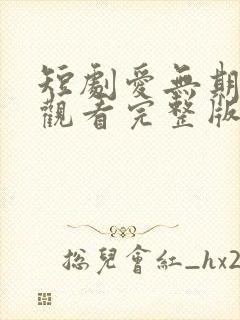 短劇愛無期
觀看完整版
總兒會紅_hx2